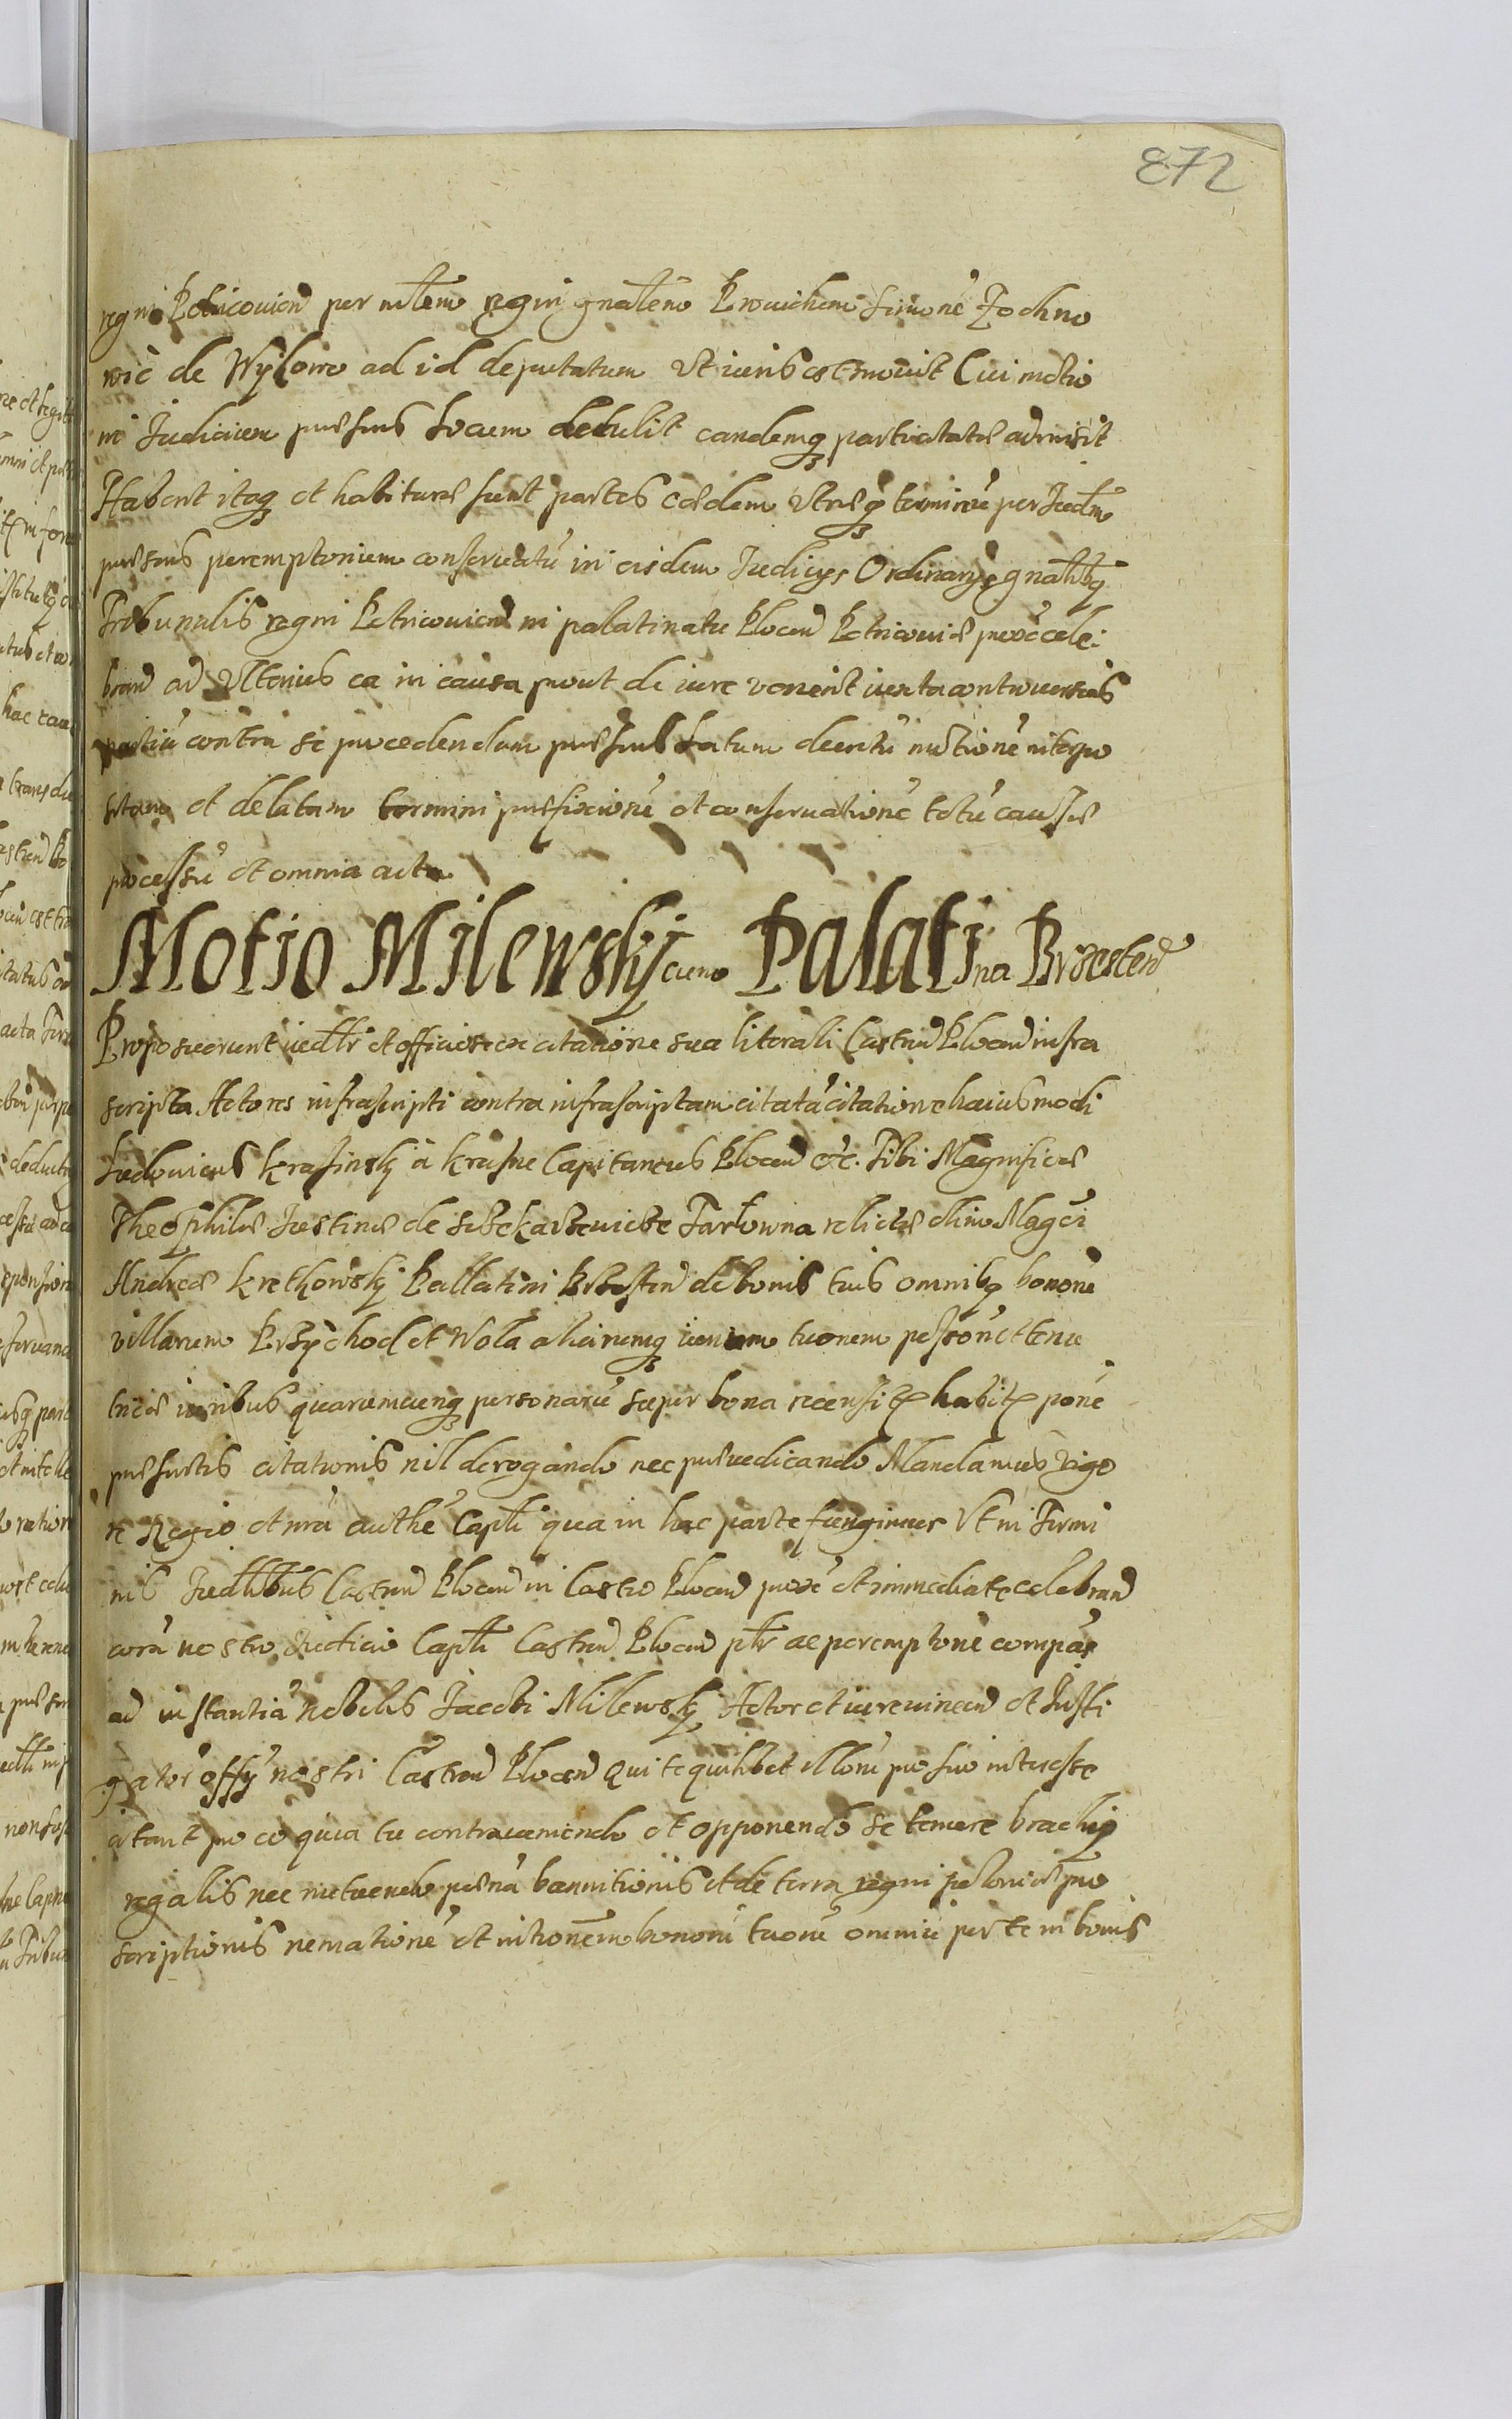 872
regni Petricovien per mltem regni gnalem Provichem Simonē Zochno
wic de Wylowo ad id deputatum Ut iuris est movit Cui motio
ni Judicium præsens locum detulit eandemq particitatæ admisit
Habent itaq et habituræ sunt partes eædem utræq terminū per Judm
præsens peremptorium conservatū in eisdem Judicys Ordinarys gnalibq
Tribunalis regni Petricovien in palatinatu Plocen Petricoviæ proxe cele:
brand ad ulterius ea in causa prout de iure venerit iuxta controversias
partiū contra se procedendum præsens latum decretū motionē interpo
sitam et delatam termini præfixionē et conservationē totū causæ
processū et omnia acta
Motio Milewsky cum Palatina Brzesten
Proposuerunt iudlr et officiose ex citatione sua literali Castren Plocen infra
scripta Actores infrascripti contra infrascriptam citatā citatione huiusmodi
Ludovicus Krasinsky a Krasne Capitaneus Plocen etc. Tibi Magnificæ
Theophilæ Justinæ de Sczekarzevicze Tarłowna relictæ olim Magci
Andreæ Krethowsky Pallatini Brzesten de bonis tuis omnibq bonorū
villarum Brzychod et Wola aliarumq iurium tuorum possonē et tenu
tricæ iuribus quarumcunq personarū super bona recensit habit ponē
præsentis citationis nil derogando nec præiudicando Mandamus vigo
re Regio et nrā authē Capli qua in hac parte fungimur Ut in Termi
nis Judlibus Castren Plocen in Castro Plocen proxē et immediate celebrand
corā nostro Judicio Capli Castren Plocen pltr ac peremptorie compās
ad instantiā Nobilis Jacobi Milewsky Actor et iurevincen et Insti
gator offy nostri Castren Plocen Qui te quilibet illorū pro suo interesse
citant pro eo quia tu contraveniendo et opponendo se temere brachy
regalis nec metuendo pœnā bannitionis et de terra regni poloniæ pro
scriptionis remationē et intromem bonorū tuorū omniū per te in bonis